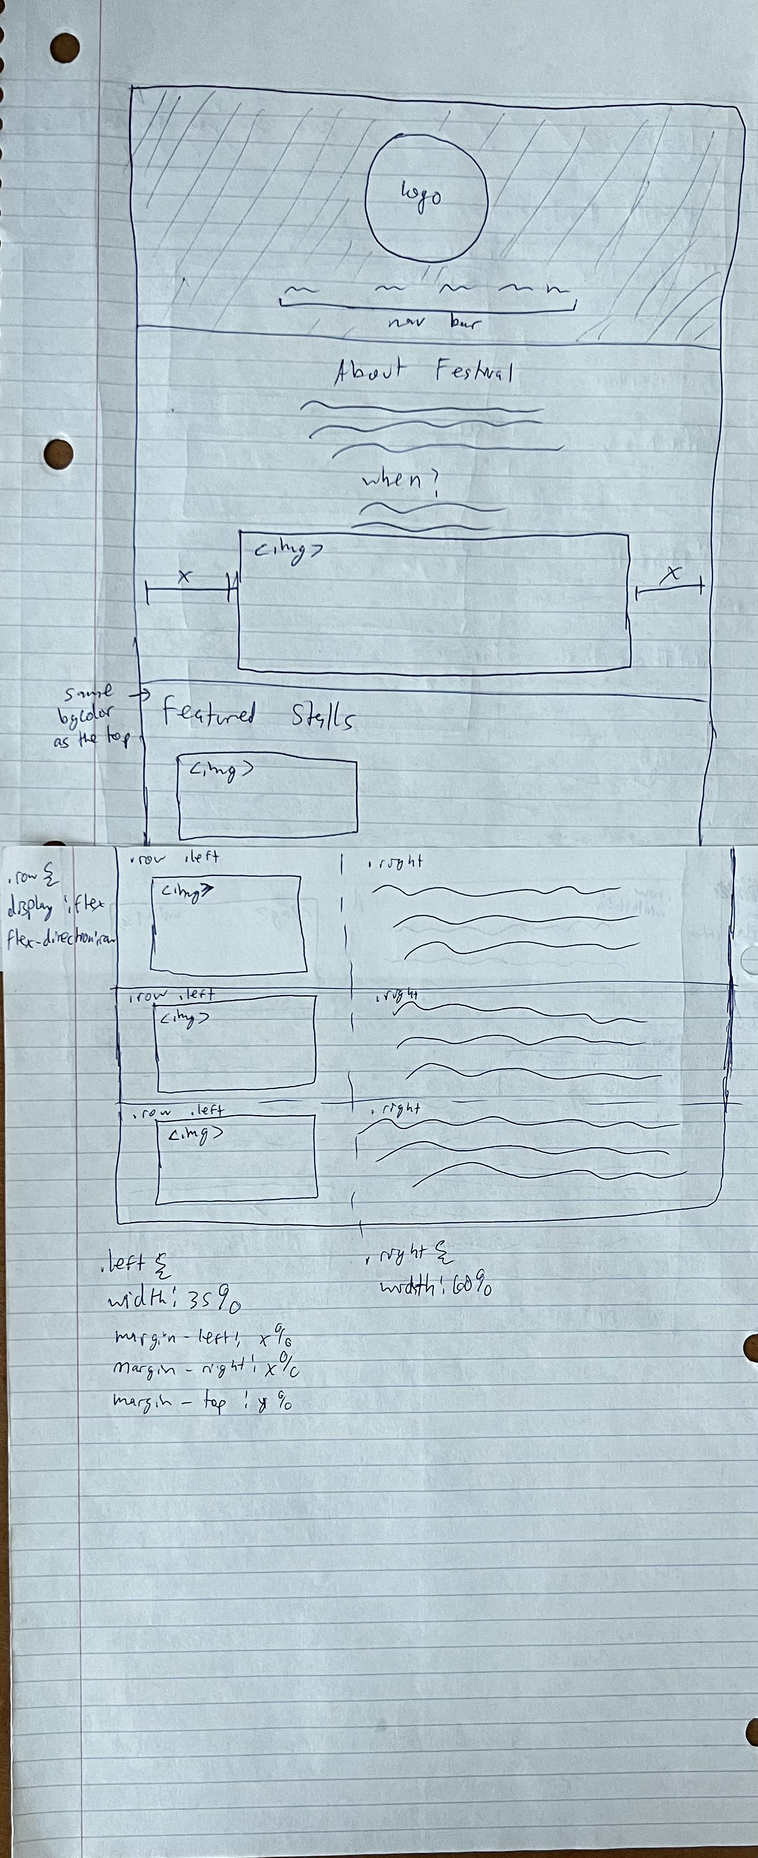 logo
nav bar
About Festival
when?
<img>
x
x
same
bgcolor
as the top
Featured Stalls
<img>
.row {
display: flex
flex-direction: row
.row .left
.right
<img>
.row .left
.right
<img>
.row .left
.right
<img>
.left {
width: 35%
margin-left: x%
margin-right: x%
margin-top: y%
.right {
width: 60%